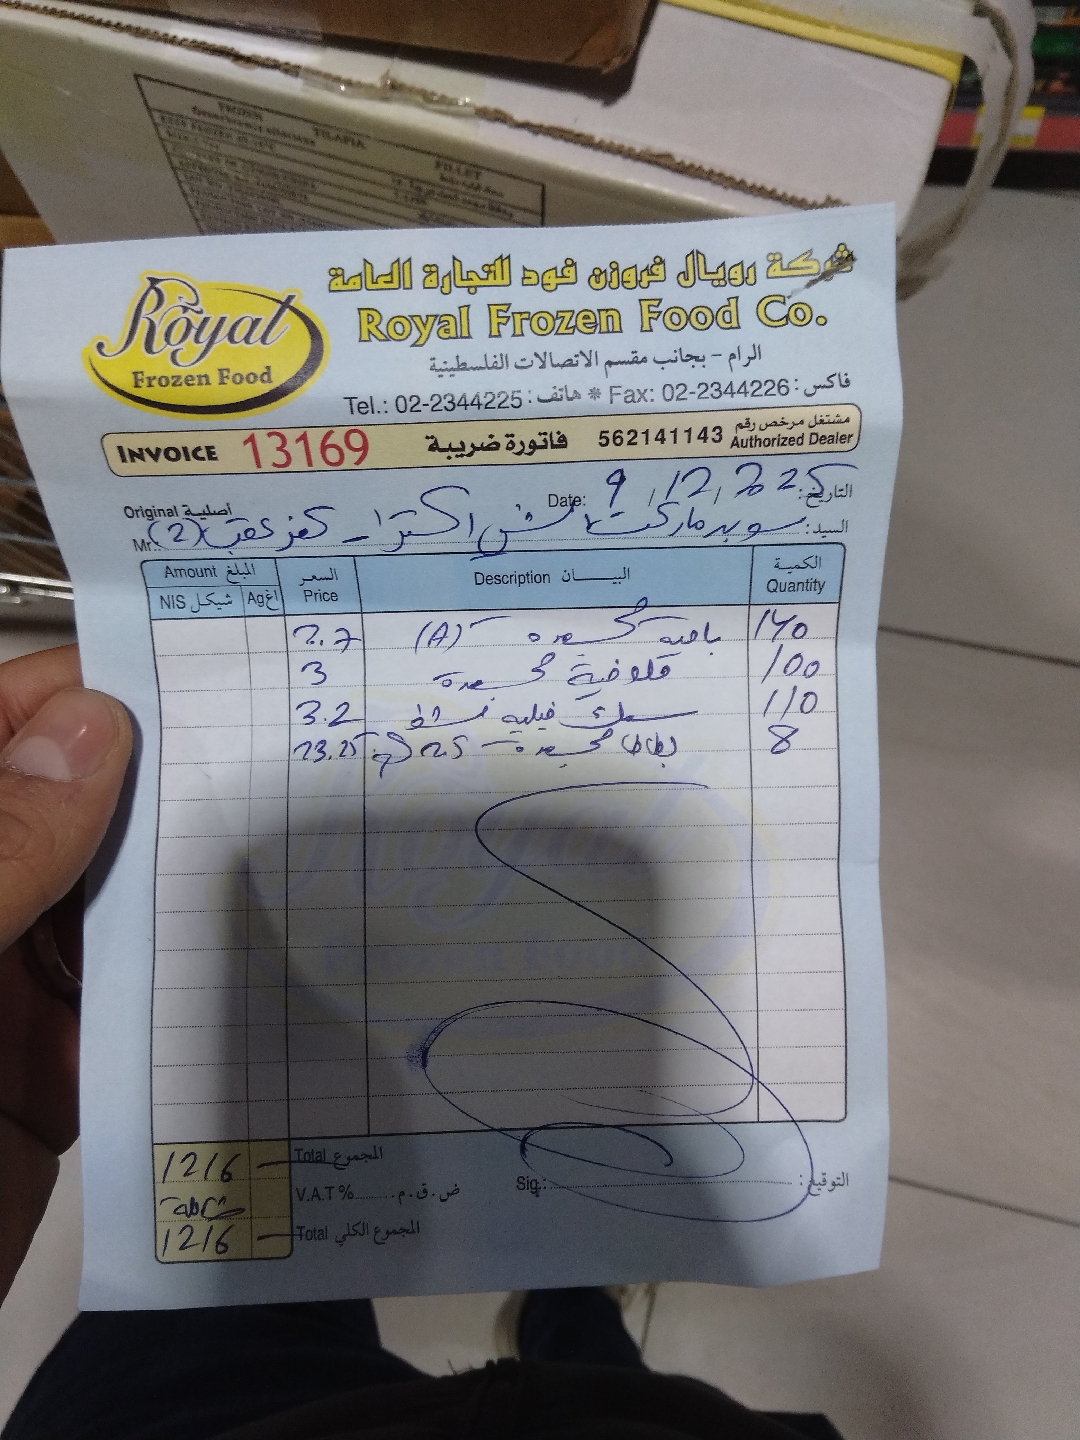 FROZEN TILAPIA FILLET
Royal
Frozen Food
شركة رويال فروزن فود للتجارة العامة
Royal Frozen Food Co.
الرام - بجانب مقسم الاتصالات الفلسطينية
Tel.: 02-2344225 هاتف: * Fax: 02-2344226 فاكس:
INVOICE 13169 فاتورة ضريبة 562141143 مشتغل مرخص رقم Authorized Dealer
Original أصلية
Date: 9/12/2025 التاريخ:
Mr.: السيد: سوبرماركت اكسترا - كفر عقب (2)
Amount المبلغ السعر Price Description البيــــان الكمية Quantity
NIS شيكل Ag اغ
140 بامية مجمدة (A) 2.7
100 ملوخية مجمدة 3
110 سمك فيليه 3.2
8 بطاطا مجمدة 2.5 23.25
1216 Total المجموع
شاملة V.A.T % ض.ق.م.
1216 Total المجموع الكلي
Sig.: التوقيع: